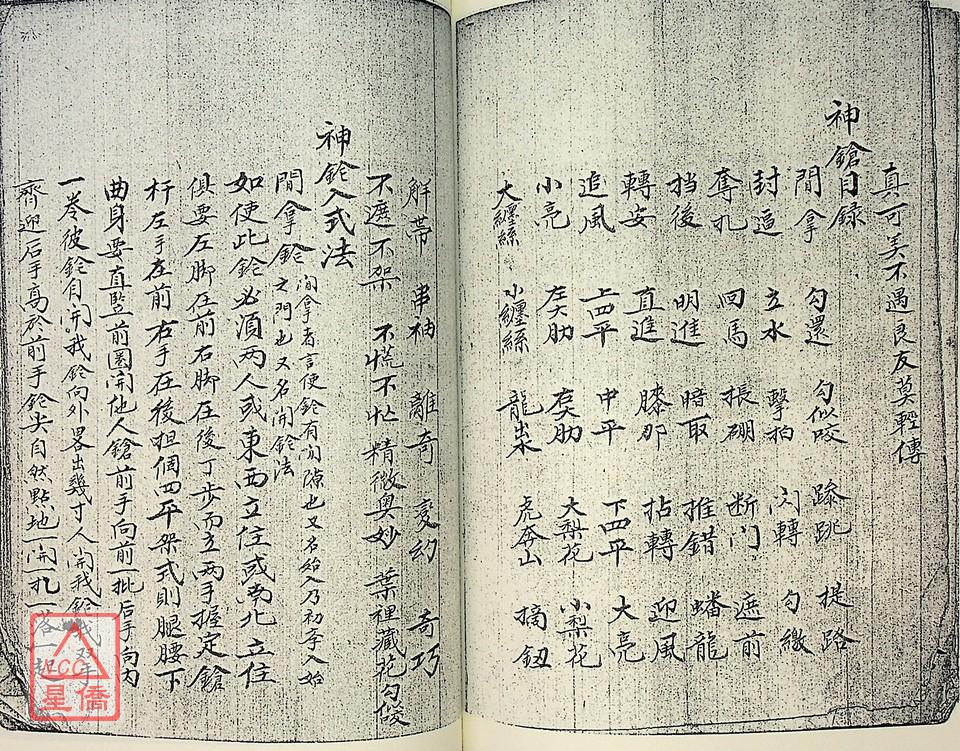 真可美不遇良友莫輕傳
神鎗目録
閒拿 勾還 勾似咬 蹺跳 提路
封逼 立水 擊拍 闪轉 勾繳
奪扎 回馬 振硼 断门 遮前
挡後 明進 暗取 推錯 蟠龍
轉安 直進 膝那 拈轉 迎風
追風 上四平 中平 下四平 大亮
小亮 左肋 右肋 大梨花 小梨花
大纏絲 小纏絲 龍出水 虎奔山 摘鈕
解帯 串袖 離奇 变约 奇巧
不遮不架 不慌不忙 精微奥妙 葉裡藏花勾
神鎗入式法
閒拿鎗 閒拿者言使鎗有前隙也又名始入乃初季入始之門也又名開鎗法
如使此鎗必須两人或東西立住或南北立住
俱要左脚在前右脚在後丁步而立两手握定鎗
杆左手在前右手在後担個四平架式則腿腰下
曲身要直竪前圈開他人鎗前手向前一批后手向内
一拳彼鎗自開我鎗向外畧出幾寸人開我鎗我双手
齊迎后手高於前手鎗尖自然點地一開一扎一落一起
星僑